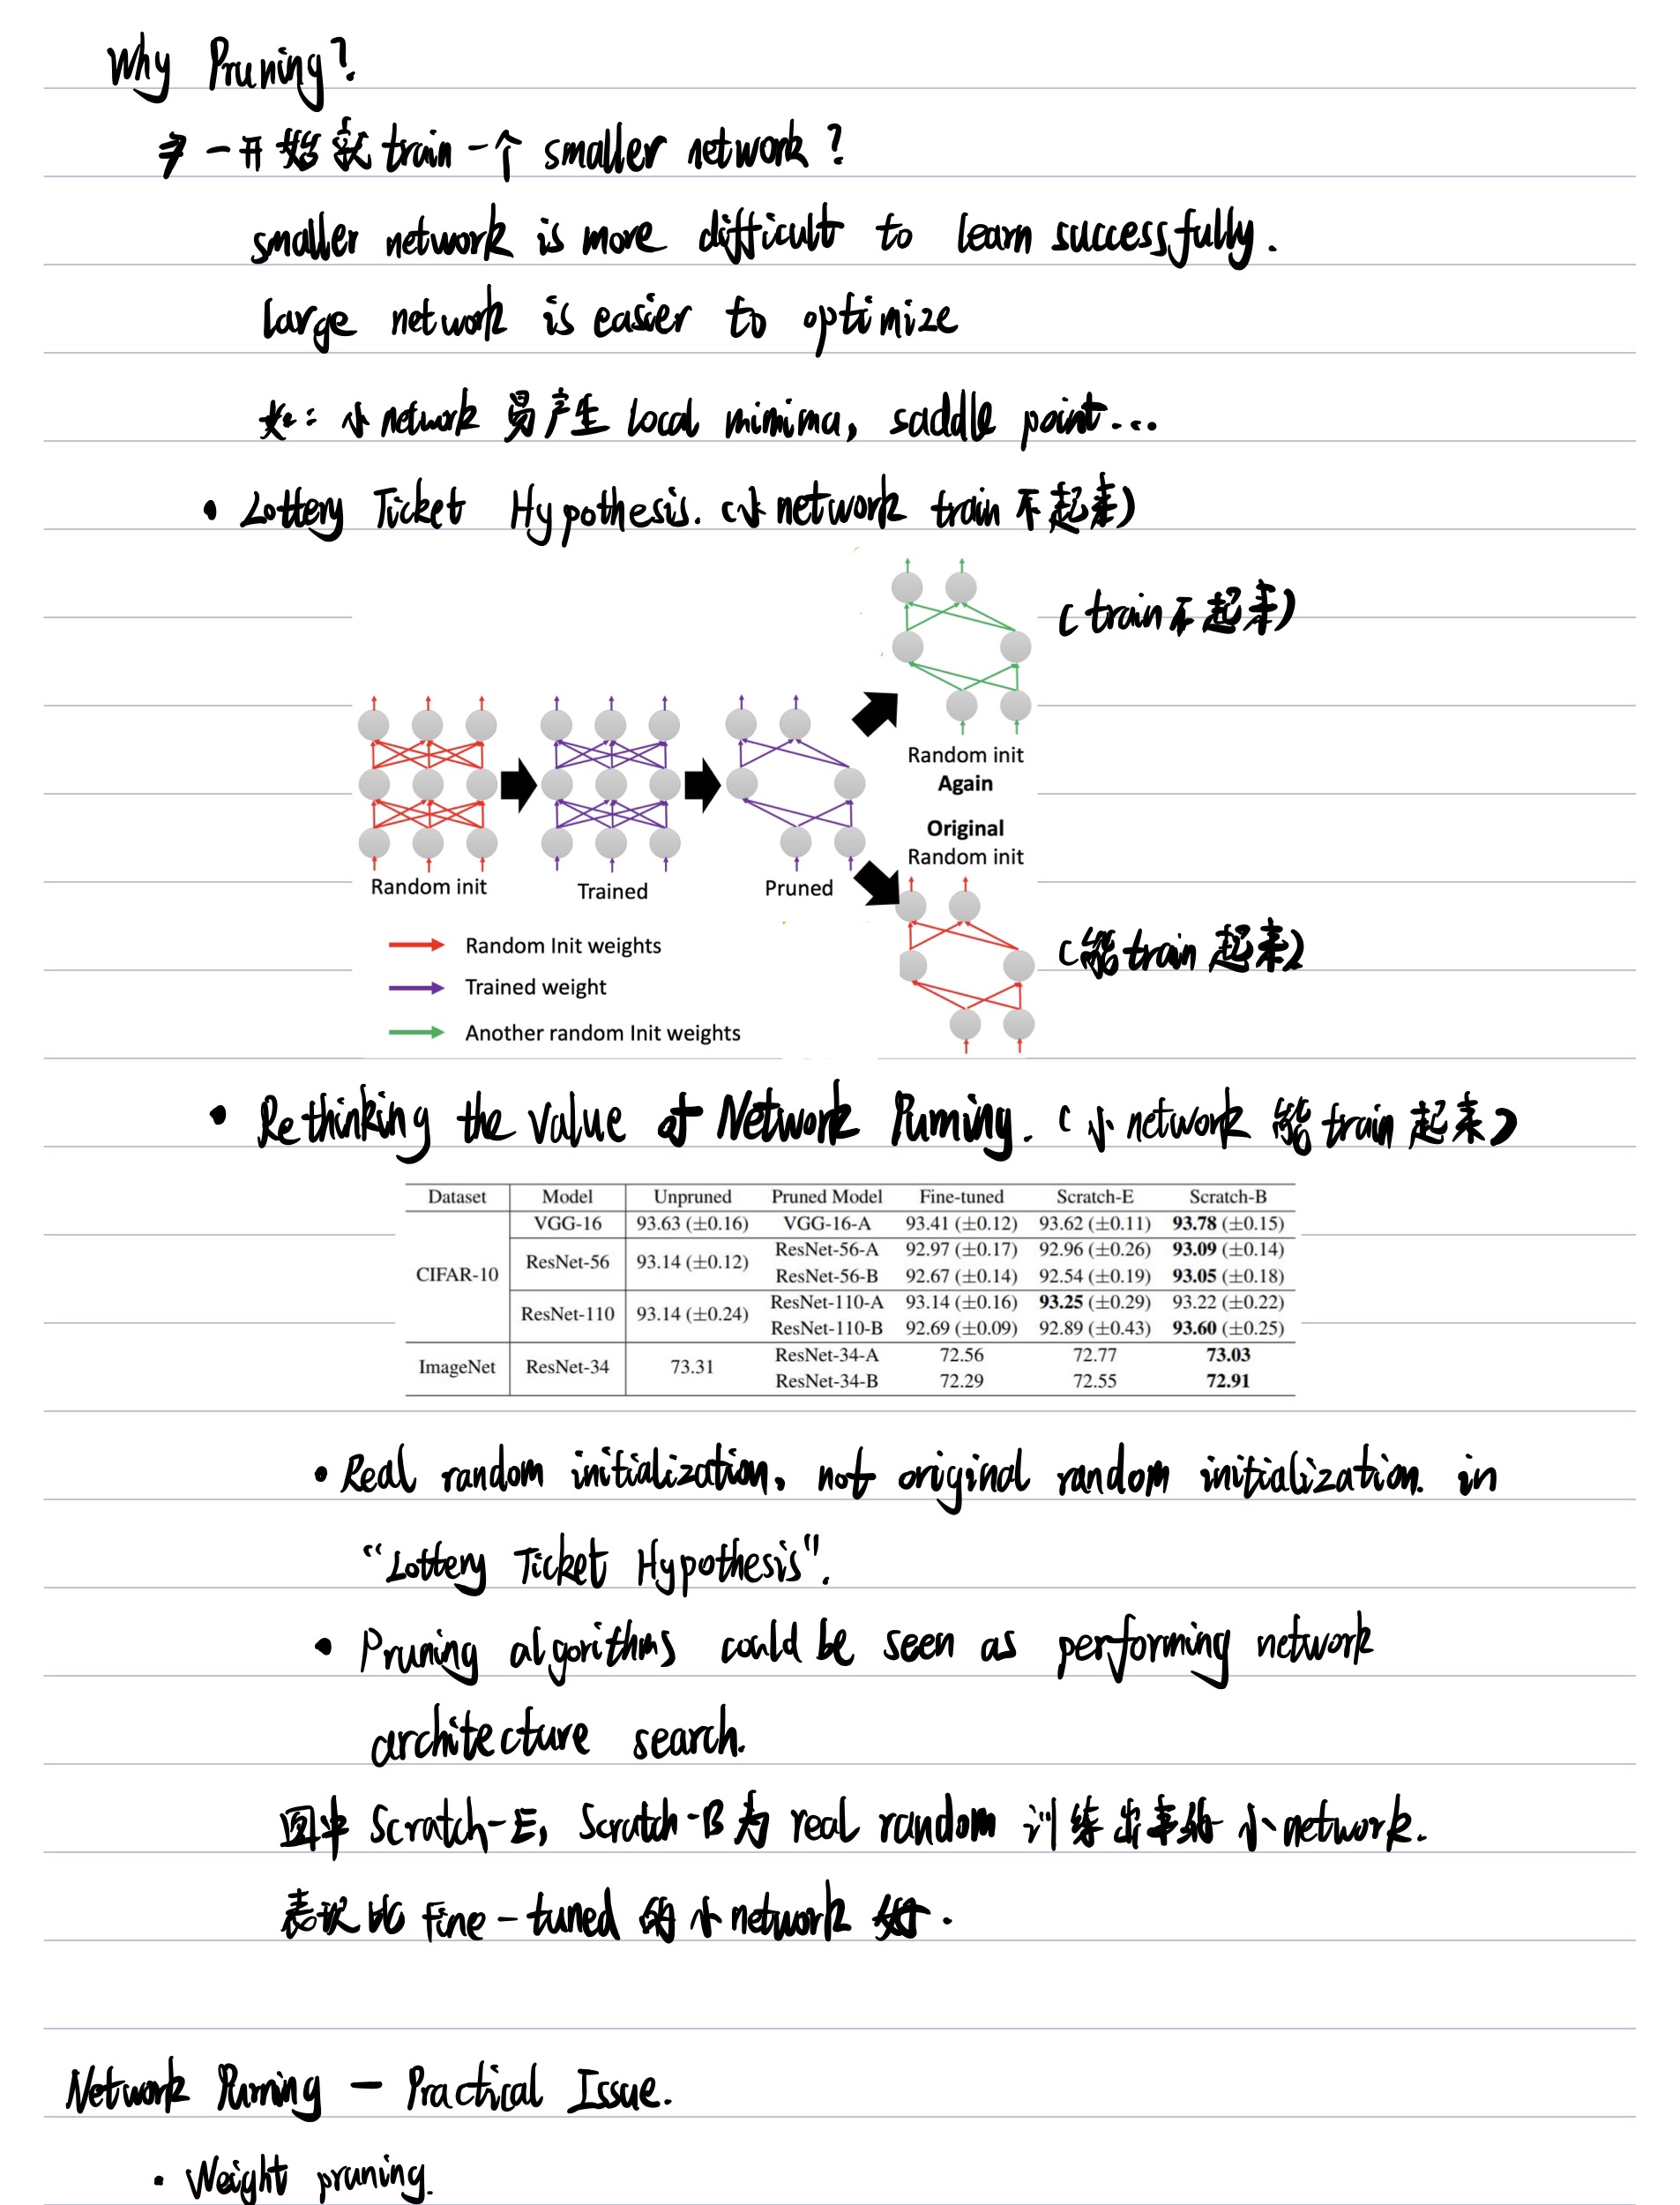 Why Pruning?
⇒ 一开始就train一个 smaller network?
smaller network is more difficult to learn successfully.
large network is easier to optimize
如: 小network 易产生 local minima, saddle point...
• Lottery Ticket Hypothesis. (小network train不起来)
(train不起来)
Random init
Again
Original
Random init
Random init
Trained
Pruned
(能train起来)
Random Init weights
Trained weight
Another random Init weights
• Rethinking the Value of Network Pruning. (小network 能train起来)
Dataset Model Unpruned Pruned Model Fine-tuned Scratch-E Scratch-B
VGG-16 93.63 (±0.16) VGG-16-A 93.41 (±0.12) 93.62 (±0.11) 93.78 (±0.15)
CIFAR-10 ResNet-56 93.14 (±0.12) ResNet-56-A 92.97 (±0.17) 92.96 (±0.26) 93.09 (±0.14)
ResNet-56-B 92.67 (±0.14) 92.54 (±0.19) 93.05 (±0.18)
ResNet-110 93.14 (±0.24) ResNet-110-A 93.14 (±0.16) 93.25 (±0.29) 93.22 (±0.22)
ResNet-110-B 92.69 (±0.09) 92.89 (±0.43) 93.60 (±0.25)
ImageNet ResNet-34 73.31 ResNet-34-A 72.56 72.77 73.03
ResNet-34-B 72.29 72.55 72.91
• Real random initialization, not original random initialization. in
"Lottery Ticket Hypothesis".
• Pruning algorithms could be seen as performing network
architecture search.
图中 Scratch-E, Scratch-B为 real random 训练出来的 小network.
表现比 Fine-tuned 的小network 好.
Network Pruning — Practical Issue.
• Weight pruning.